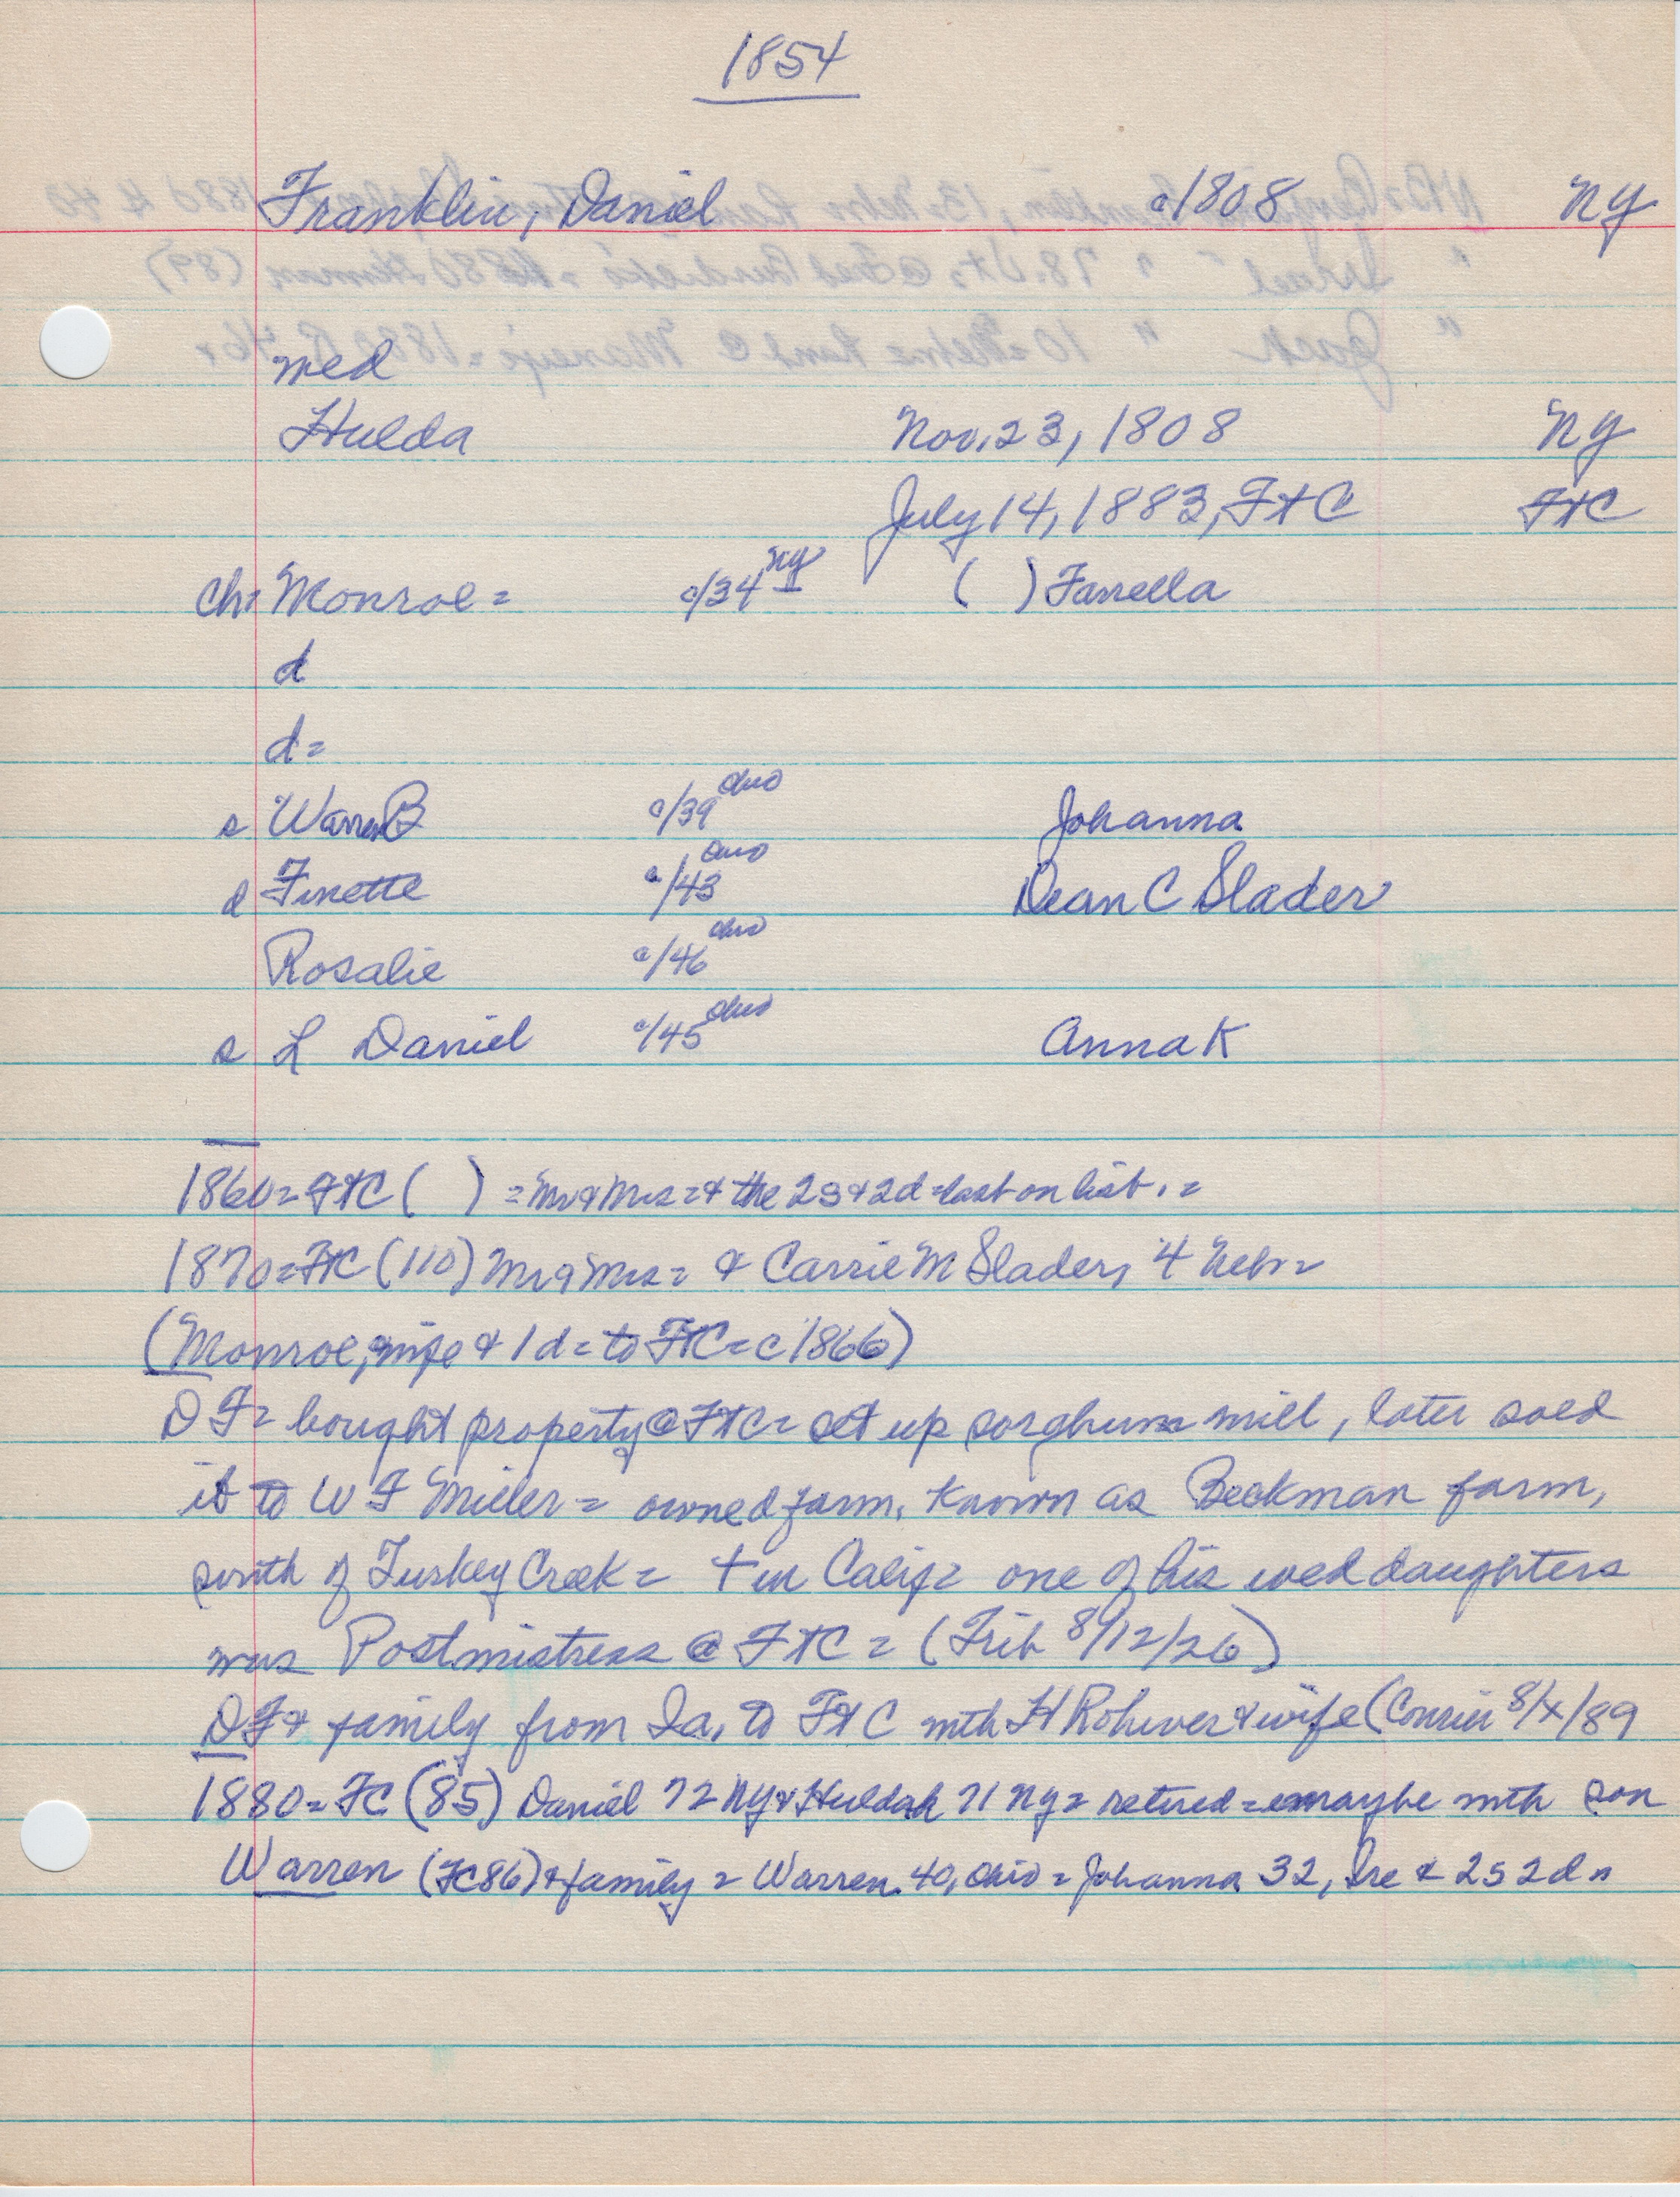 1854
Franklin, Daniel c1808 NY
wed
Hulda Nov. 23, 1808 NY
July 14, 1883, FtC FtC
ch: Monroe = c/34 NY ( ) Farrella
d
d =
s Warren B c/39 Ohio Johanna
d Finette c/43 Ohio Dean C Slader
Rosalie c/46 Ohio
s L Daniel c/45 Ohio Anna K
1860 = FtC ( ) = Mr & Mrs = & the 2s & 2d = last on list. =
1870 = FtC (110) Mr & Mrs = & Carrie M Slader, 4 Nebr =
(Monroe, wife & 1 d = to FtC = c1866)
DF = bought property @ FtC = set up sorghum mill, later sold
it to W F Miller = owned farm, known as Beekman farm,
south of Turkey Creek = + in Calif = one of his wed daughters
was Postmistress @ FtC = (Trib 8/12/26)
DF & family from Ia, to FtC with H Rohwer & wife (Courier 8/x/89
1880 = FC (85) Daniel 72 NY & Huldah 71 NY = retired = maybe with son
Warren (FC86) & family = Warren 40, Ohio = Johanna 32, Ire & 2s 2d =